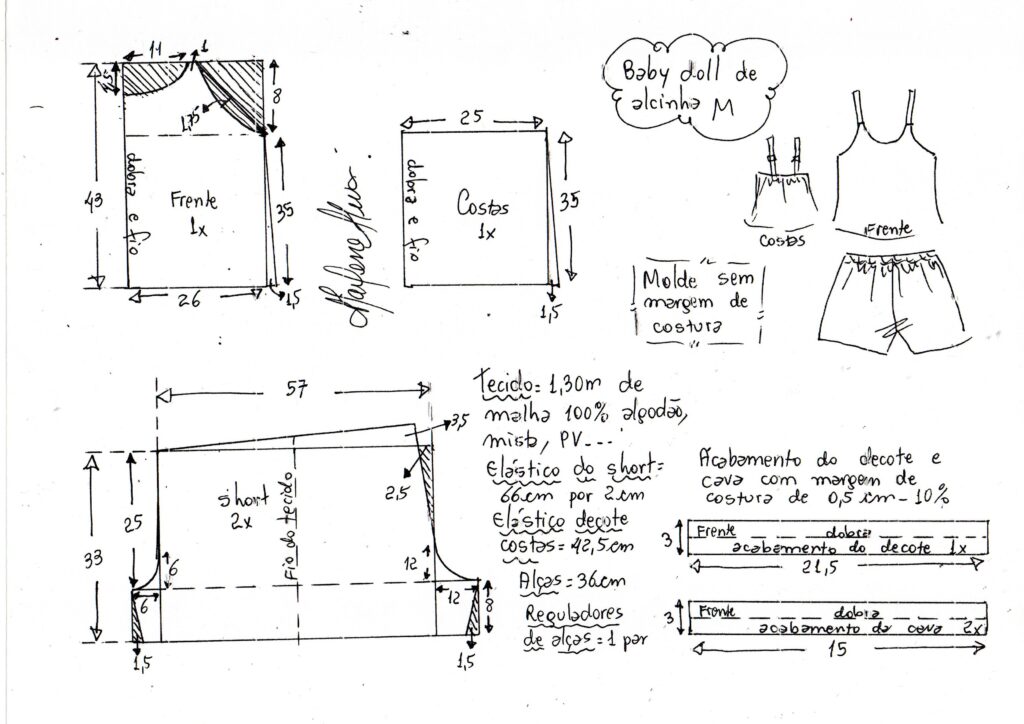 11
1
7,5
8
1,75
43
dobra e fio
Frente
1x
35
26
1,5
25
dobra e fio
Costas
1x
35
1,5
Baby doll de
alcinha M
Costas
Frente
Molde sem
margem de
costura
57
3,5
2,5
short
2x
Fio do tecido
25
33
6
6
12
12
8
1,5
1,5
Tecido= 1,30m de
malha 100% algodão,
mista, PV---
Elástico do short=
66cm por 2cm
Elástico decote
costas= 42,5cm
Alças= 36cm
Reguladores
de alças= 1 par
Acabamento do decote e
cava com margem de
costura de 0,5 cm - 10%
3
Frente dobra
acabamento do decote 1x
21,5
3
Frente dobra
acabamento da cava 2x
15